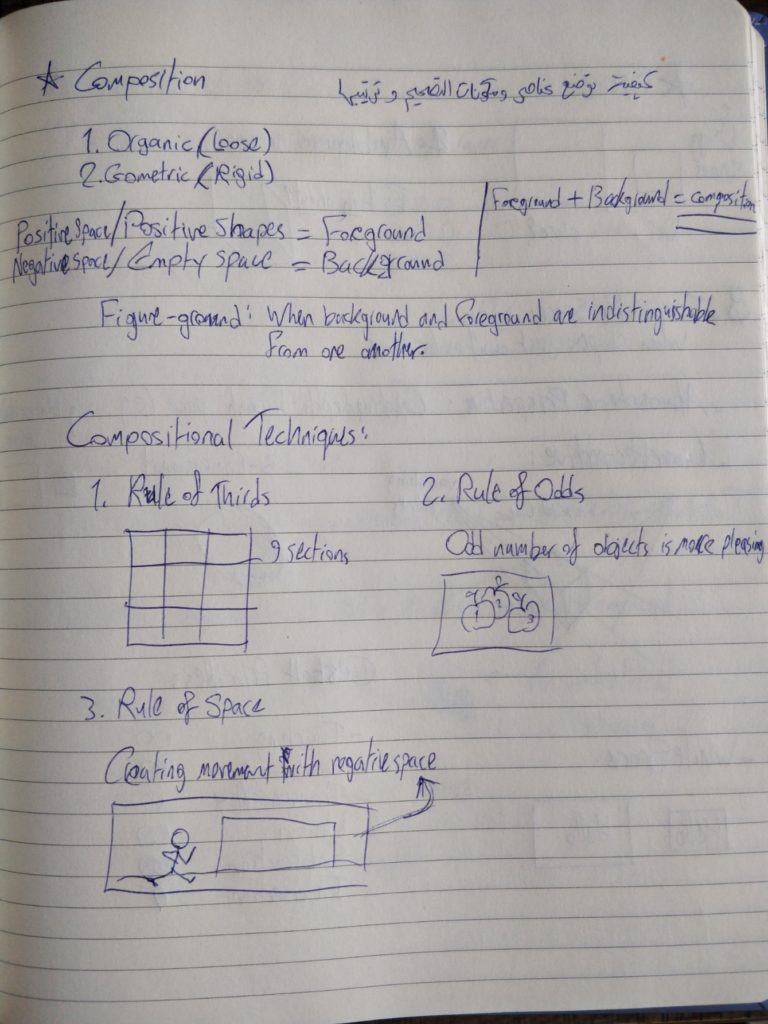 * Composition
كيفية توضع عناصر ومكونات التصميم و ترتيبها
1. Organic (Loose)
2. Gometric (Rigid)
Foreground + Background = composition
Positive space/Positive Shapes = Foreground
Negative space/ Empty space = Background
Figure-ground: When background and foreground are indistinguishable
from one another.
Compositional Techniques:
1. Rule of Thirds
2. Rule of Odds
9 sections
Odd number of objects is more pleasing
1 2 3
3. Rule of Space
Creating movement with negative space